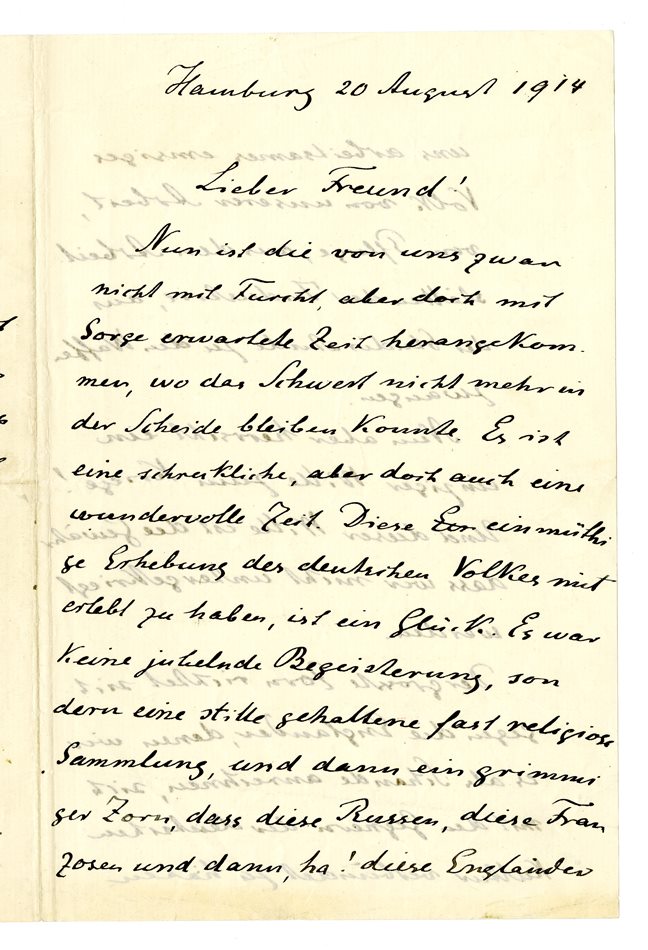 Hamburg 20 August 1914
Lieber Freund!
Nun ist die von uns zwar
nicht mit Furcht, aber doch mit
Sorge erwartete Zeit herangekom-
men, wo das Schwert nicht mehr in
der Scheide bleiben konnte. Es ist
eine schreckliche, aber doch auch eine
wundervolle Zeit. Diese einmüthi
ge Erhebung des deutschen Volkes mit
erlebt zu haben, ist ein Glück. Es war
keine jubelnde Begeisterung, son
dern eine stille gehaltene fast religiöse
Sammlung, und dann ein grimmi
ger Zorn, dass diese Russen, diese Fran
zosen und dann, ha! diese Engländer